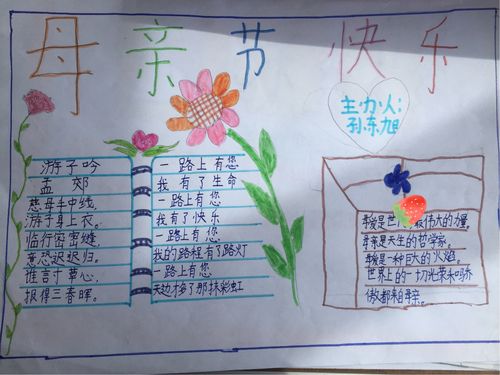 母亲节快乐
主办人:
孙东旭
游子吟
孟郊
慈母手中线,
游子身上衣。
临行密密缝,
意恐迟迟归。
谁言寸草心,
报得三春晖。
一路上有您
我有了生命
一路上有您
我有了快乐
一路上有您
我的路程有了路灯
一路上有您
天边才多了那抹彩虹
母亲是天生的哲学家。
是一种巨大的火焰。
世界上的一切光荣和骄
傲都来自母亲。